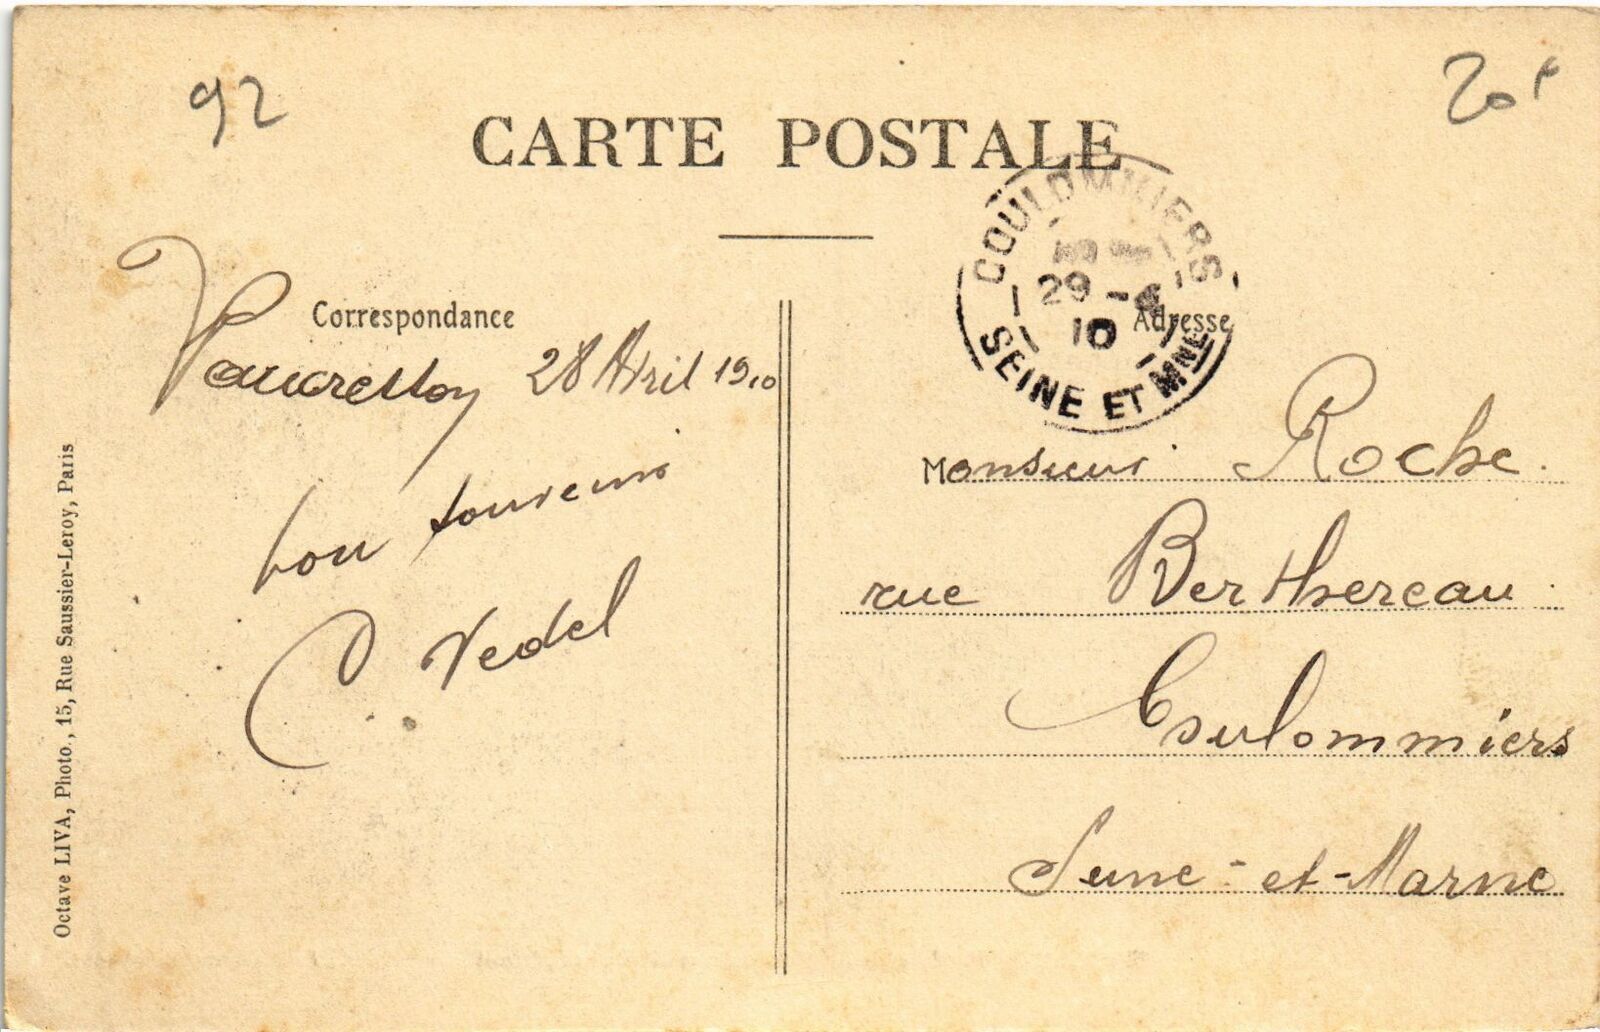 92
20F
CARTE POSTALE
COULOMMIERS
29 - 4
10
SEINE ET MNE
Correspondance
Adresse
Vaucresson 28 Avril 1910
bon souvenir
C Vedel
Monsieur Roche.
rue Berthereau
Coulommiers
Seine-et-Marne
Octave LIVA, Photo., 15, Rue Saussier-Leroy, Paris